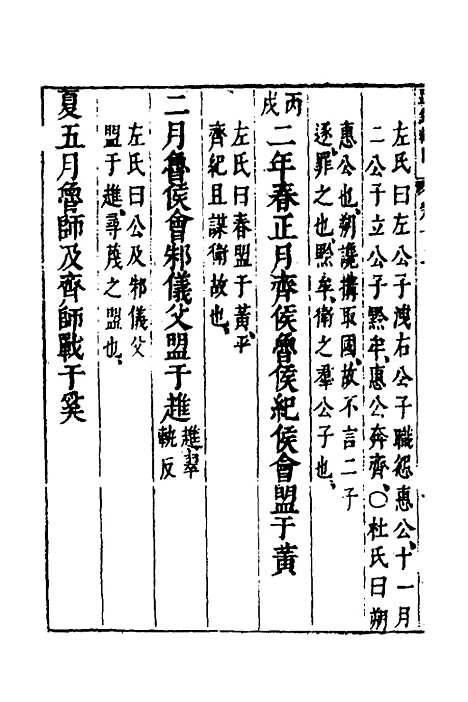 左氏曰左公子洩右公子職怨惠公十一月
二公子立公子黔牟惠公奔齊○杜氏曰朔
惠公也朔讒搆取國故不言二子
逐罪之也黔牟衛之羣公子也
丙戌
二年春正月齊侯魯侯紀侯會盟于黃
左氏曰春盟于黃平
齊紀且謀衛故也
二月魯侯會邾儀父盟于趡趡翠軌反
左氏曰公及邾儀父
盟于趡尋蔑之盟也
夏五月魯師及齊師戰于奚